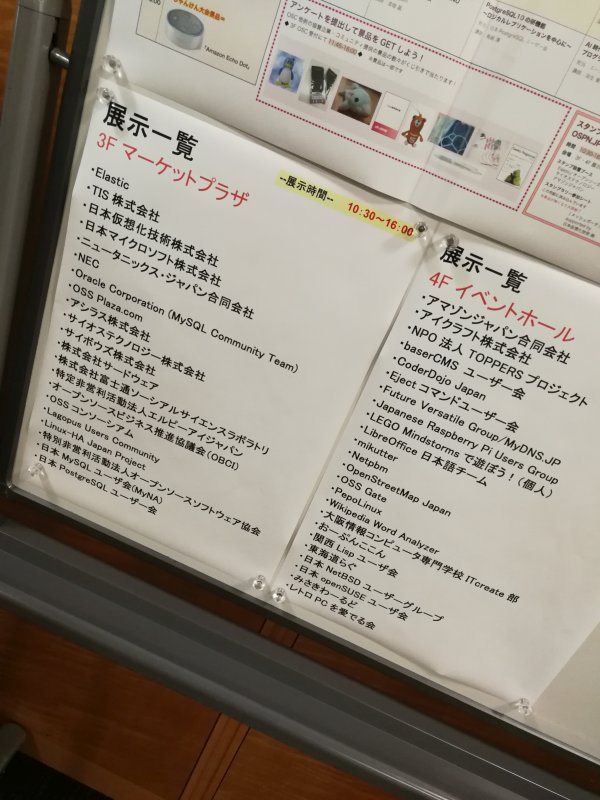 じゃんけん大会景品=
「Amazon Echo Dot」
アンケートを提出して景品を GET しよう！
3F OSC受付にて 11:45-16:00
PostgreSQL10 の新機能
~ロジカルレプリケーションを中心に~
スタンプ
OSPN.JP
展示一覧
3F マーケットプラザ
--展示時間-- 10:30～16:00
・Elastic
・TIS 株式会社
・日本仮想化技術株式会社
・日本マイクロソフト株式会社
・ニュータニックス・ジャパン合同会社
・NEC
・Oracle Corporation (MySQL Community Team)
・OSS Plaza.com
・アシラス株式会社
・サイオステクノロジー株式会社
・サイボウズ株式会社
・株式会社サードウェア
・株式会社富士通ソーシアルサイエンスラボラトリ
・特定非営利活動法人エルピーアイジャパン
・オープンソースビジネス推進協議会(OBCI)
・OSS コンソーシアム
・Lagopus Users Community
・Linux-HA Japan Project
・特別非営利活動法人オープンソースソフトウェア協会
・日本 MySQL ユーザ会(MyNA)
・日本 PostgreSQL ユーザー会
展示一覧
4F イベントホール
・アマゾンジャパン合同会社
・アイクラフト株式会社
・NPO 法人 TOPPERS プロジェクト
・baserCMS ユーザー会
・CoderDojo Japan
・Eject コマンドユーザー会
・Future Versatile Group/MyDNS.JP
・Japanese Raspberry Pi Users Group
・LEGO Mindstorms で遊ぼう！（個人）
・LibreOffice 日本語チーム
・mikutter
・Netpbm
・OpenStreetMap Japan
・OSS Gate
・PepoLinux
・Wikipedia Word Analyzer
・大阪情報コンピュータ専門学校 ITcreate 部
・おーぷんここん
・関西 Lisp ユーザ会
・東海道らぐ
・日本 NetBSD ユーザーグループ
・日本 openSUSE ユーザ会
・みさきわーるど
・レトロ PC を愛でる会